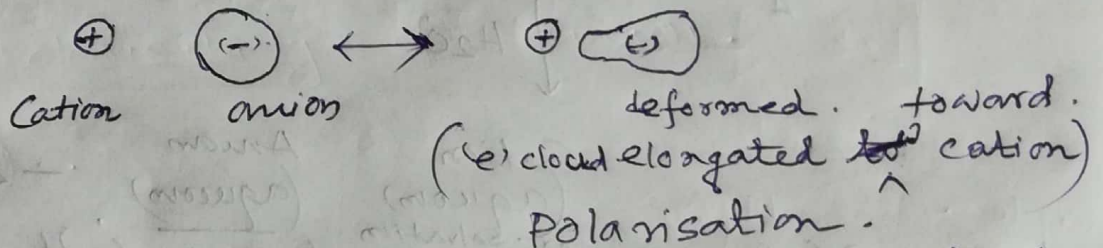 + (-) + (-)
Cation anion deformed. toward.
((e) cloud elongated cation)
Polarisation.